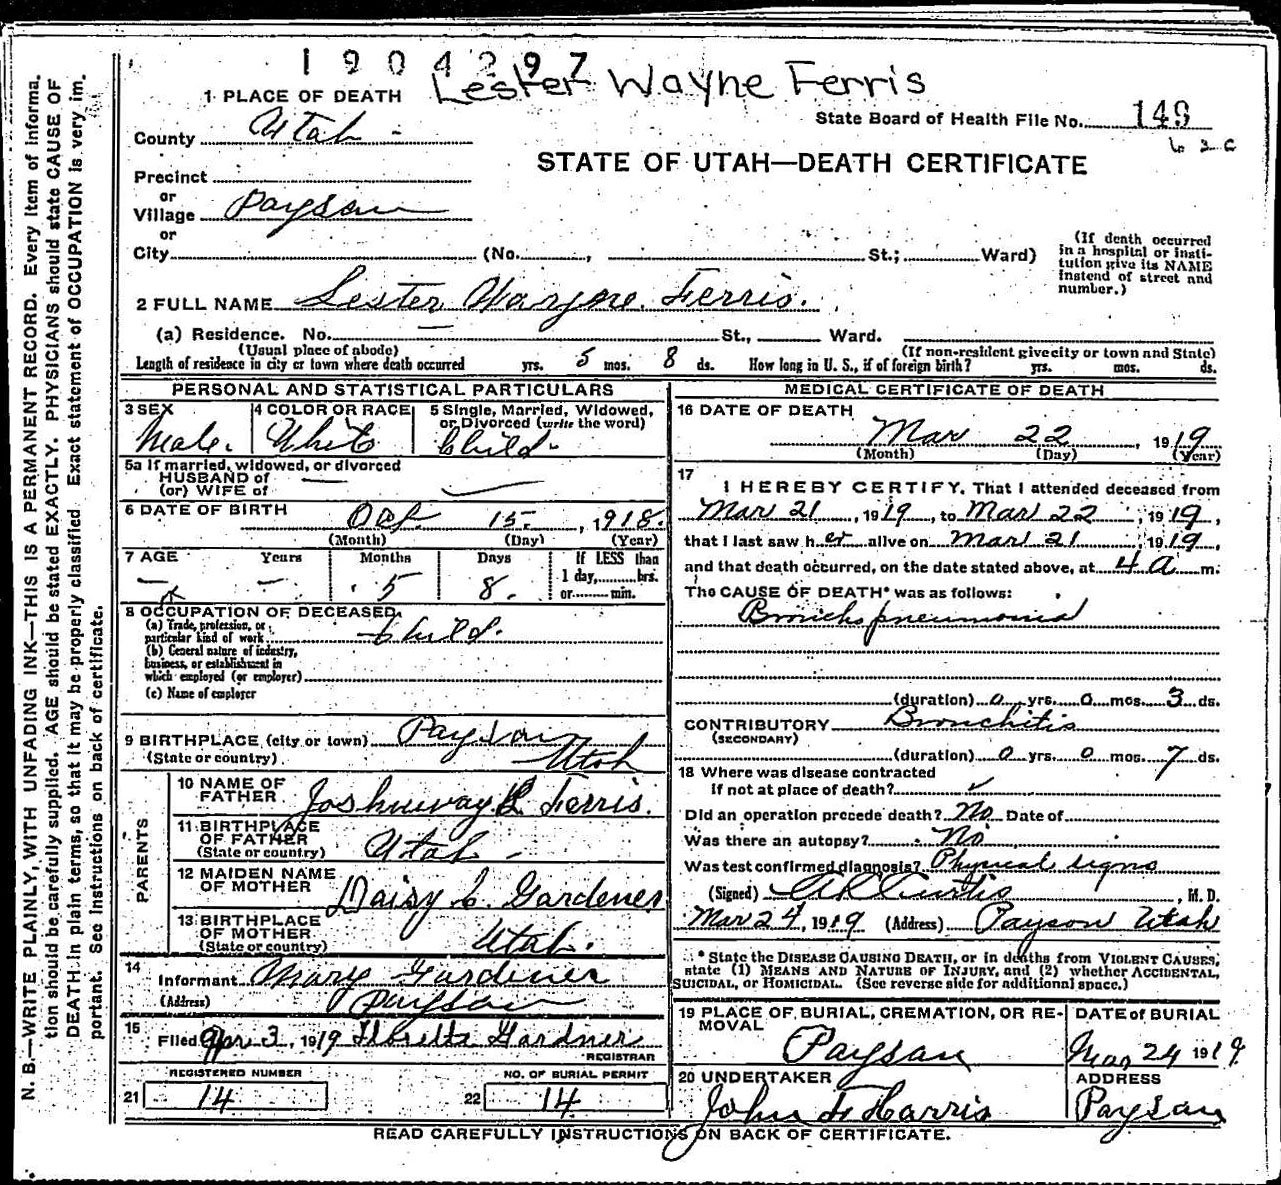 1904297
Lester Wayne Ferris
1 PLACE OF DEATH
State Board of Health File No. 149
County Utah
STATE OF UTAH—DEATH CERTIFICATE
Precinct
or
Village Payson
or
City (No. , St.; Ward)
(If death occurred in a hospital or institution give its NAME instead of street and number.)
2 FULL NAME Lester Wayne Ferris.
(a) Residence. No. St., Ward.
(Usual place of abode) (If non-resident give city or town and State)
Length of residence in city or town where death occurred yrs. 5 mos. 8 ds. How long in U. S., if of foreign birth? yrs. mos. ds.
PERSONAL AND STATISTICAL PARTICULARS
3 SEX Male.
4 COLOR OR RACE White
5 Single, Married, Widowed, or Divorced (write the word) Child
5a If married, widowed, or divorced
HUSBAND of
(or) WIFE of
6 DATE OF BIRTH Oct 15. , 1918.
(Month) (Day) (Year)
7 AGE Years Months Days If LESS than
- - 5 8. 1 day, hrs.
or min.
8 OCCUPATION OF DECEASED
(a) Trade, profession, or
particular kind of work Child.
(b) General nature of industry,
business, or establishment in
which employed (or employer)
(c) Name of employer
9 BIRTHPLACE (city or town) Payson
(State or country) Utah
PARENTS
10 NAME OF FATHER Joshuway L Ferris.
11 BIRTHPLACE OF FATHER (State or country) Utah -
12 MAIDEN NAME OF MOTHER Daisy C. Gardener
13 BIRTHPLACE OF MOTHER (State or country) Utah.
14 Informant Mary Gardiner
(Address) Payson
15 Filed Apr 3, 1919 Floretta Gardner
REGISTRAR
REGISTERED NUMBER NO. OF BURIAL PERMIT
21 14 22 14
MEDICAL CERTIFICATE OF DEATH
16 DATE OF DEATH
Mar 22 , 1919
(Month) (Day) (Year)
17 I HEREBY CERTIFY, That I attended deceased from
Mar 21 , 1919, to Mar 22 , 1919,
that I last saw h er alive on Mar 21 , 1919,
and that death occurred, on the date stated above, at 4 a m.
The CAUSE OF DEATH* was as follows:
Broncho pneumonia
(duration) 0 yrs. 0 mos. 3 ds.
CONTRIBUTORY Bronchitis
(SECONDARY)
(duration) 0 yrs. 0 mos. 7 ds.
18 Where was disease contracted
if not at place of death?
Did an operation precede death? No Date of
Was there an autopsy? No
Was test confirmed diagnosis? Physical signs
(Signed) Curtis , M. D.
Mar 24, 1919 (Address) Payson Utah
* State the DISEASE CAUSING DEATH, or in deaths from VIOLENT CAUSES,
state (1) MEANS AND NATURE OF INJURY, and (2) whether ACCIDENTAL,
SUICIDAL, or HOMICIDAL. (See reverse side for additional space.)
19 PLACE OF BURIAL, CREMATION, OR REMOVAL DATE of BURIAL
Payson Mar 24 1919
20 UNDERTAKER ADDRESS
John F Harris Payson
READ CAREFULLY INSTRUCTIONS ON BACK OF CERTIFICATE.
N. B.—WRITE PLAINLY, WITH UNFADING INK—THIS IS A PERMANENT RECORD. Every item of informa-
tion should be carefully supplied. AGE should be stated EXACTLY. PHYSICIANS should state CAUSE OF
DEATH in plain terms, so that it may be properly classified. Exact statement of OCCUPATION is very im-
portant. See instructions on back of certificate.